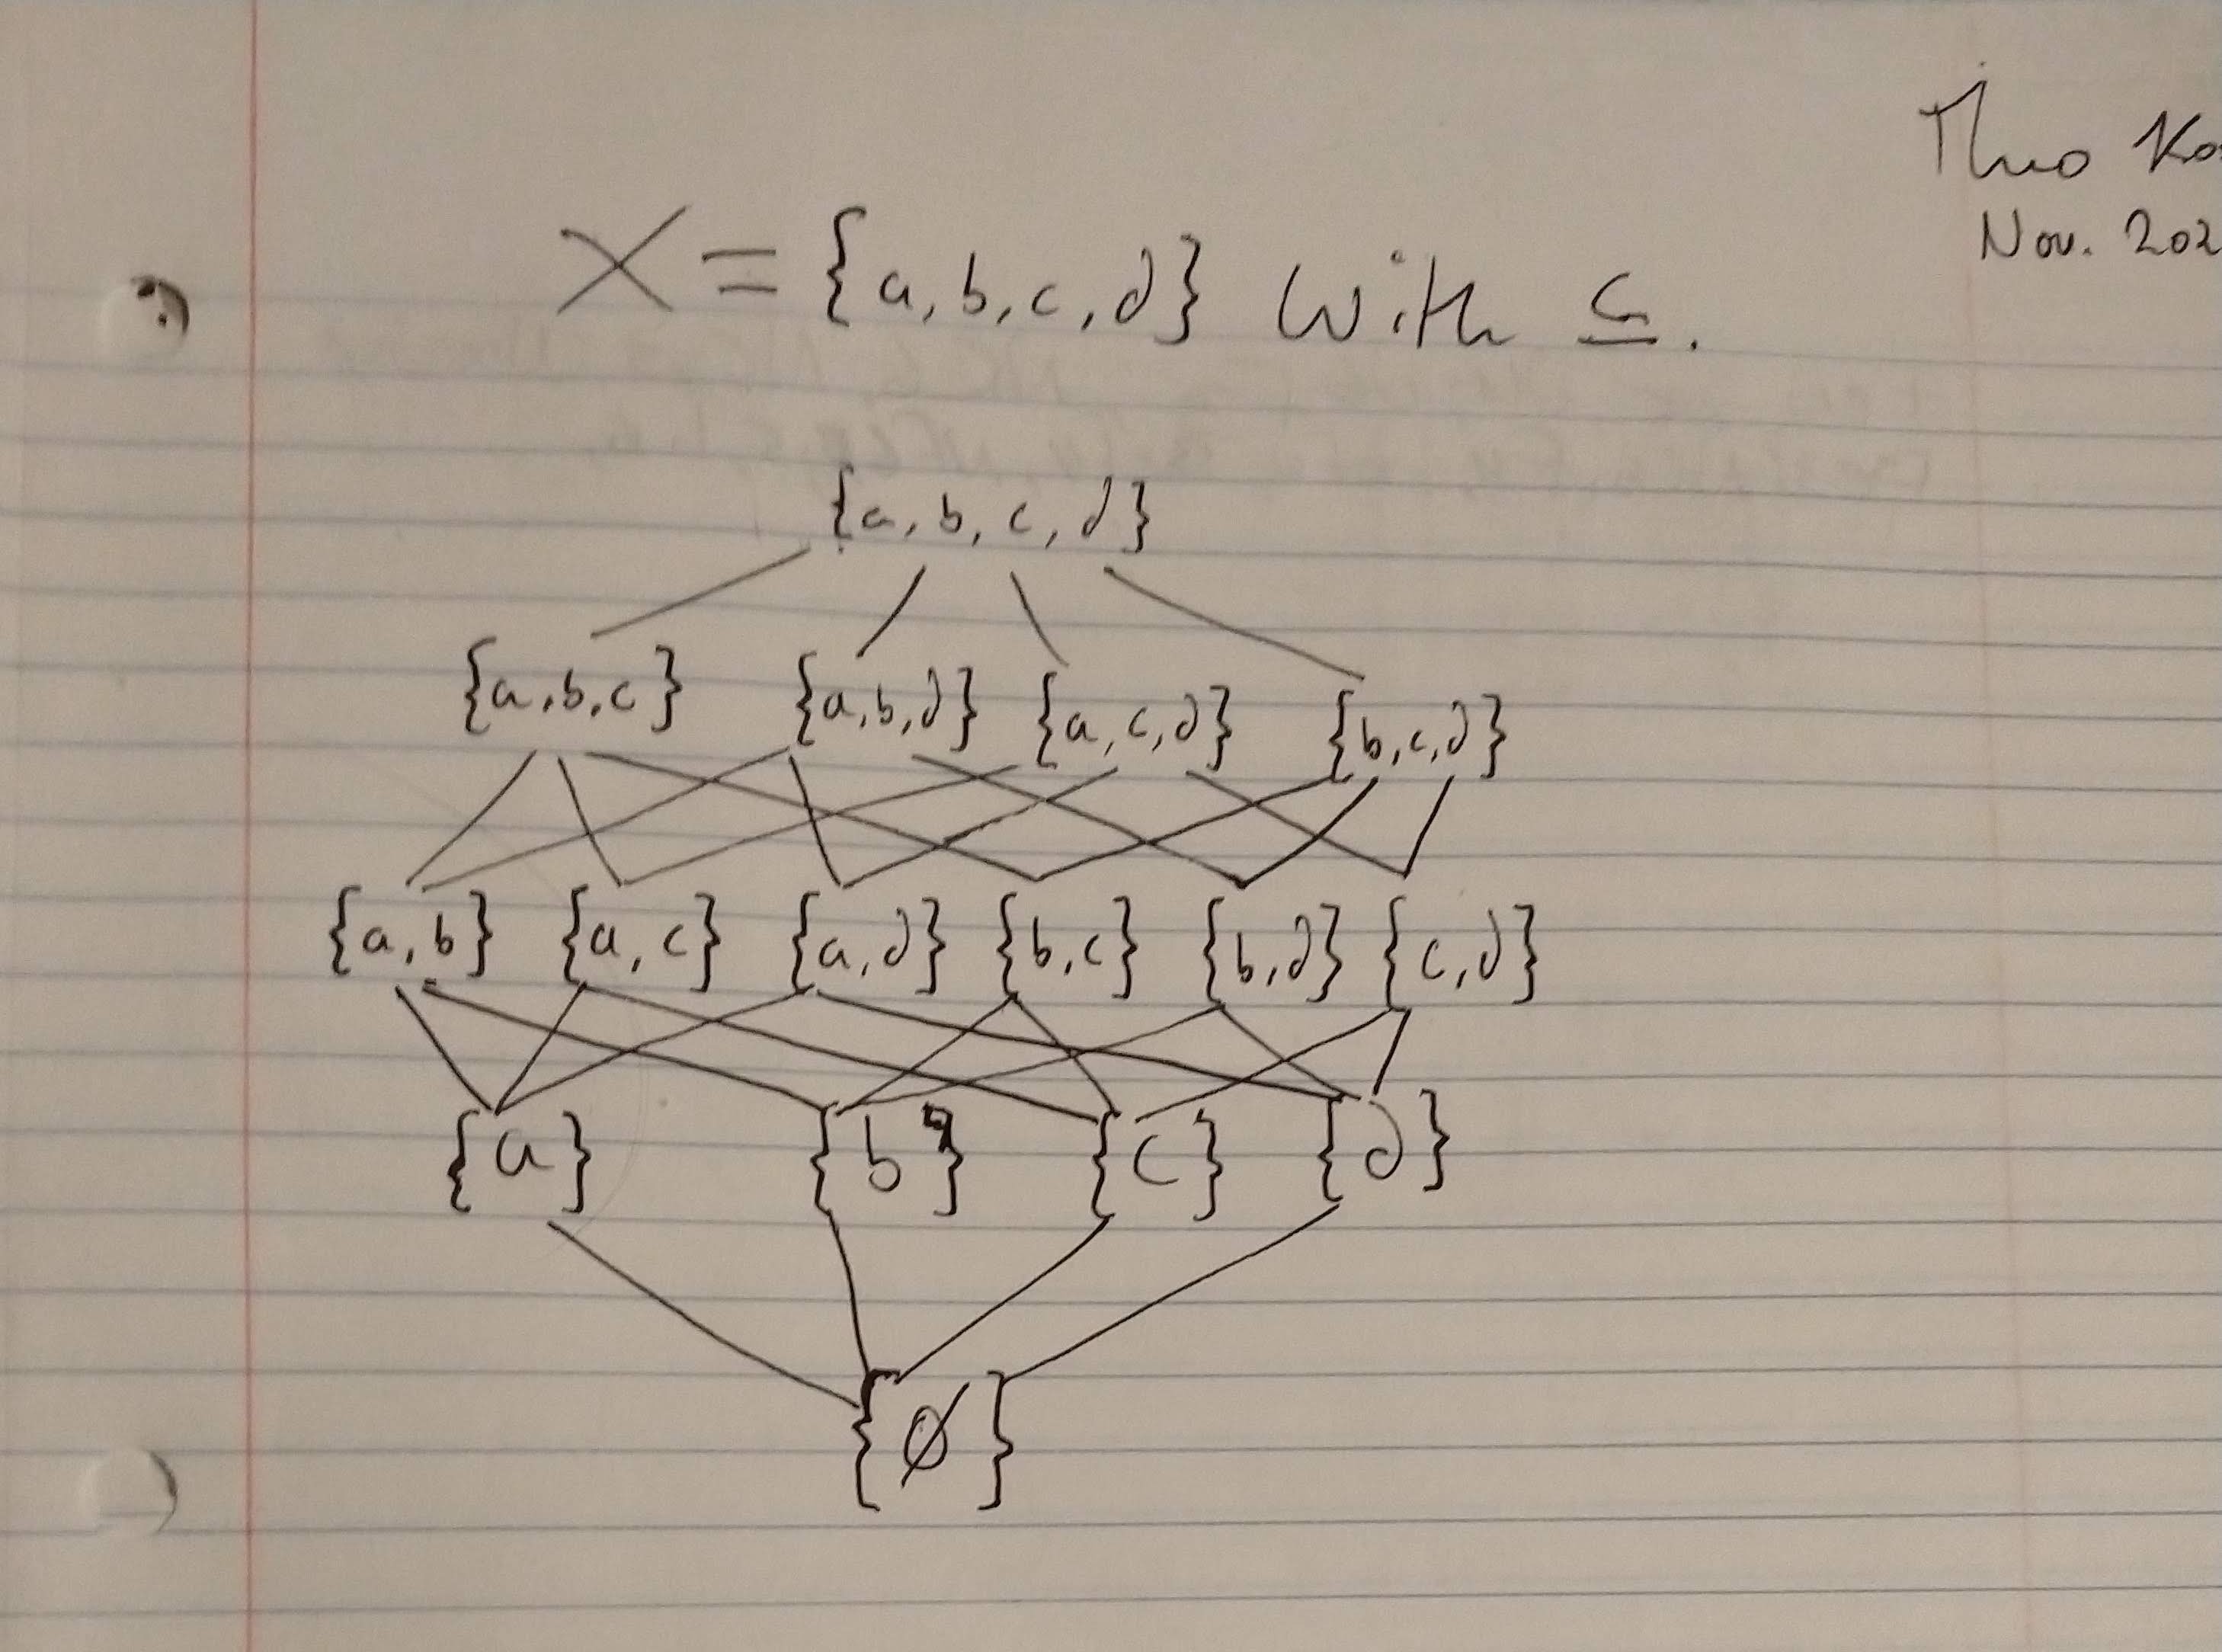 Theo
Nov. 202
X = {a, b, c, d} with ⊆.
{a, b, c, d}
{a, b, c} {a, b, d} {a, c, d} {b, c, d}
{a, b} {a, c} {a, d} {b, c} {b, d} {c, d}
{a} {b} {c} {d}
{∅}